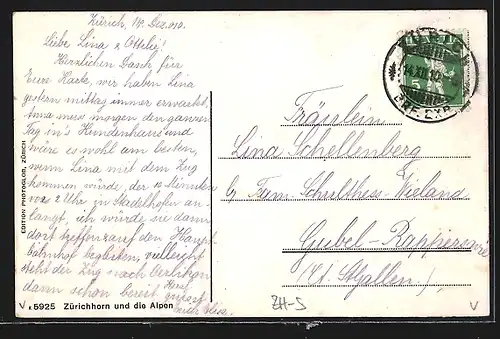 Zürich, 14. Dez. 010.
Liebe Lina & Ottilie!
Herzlichen Dank für
Eure Karte, wir haben Lina
gestern mittag immer erwartet.
Anna muss morgen den ganzen
Tag in's Kindenhaus und
wäre es wohl am besten,
wenn Lina mit dem Zug
kommen würde, der 10 Minuten
vor 2 Uhr in Stadelhofen an-
langt, ich würde sie dann
dort treffen & auf den Haupt-
bahnhof begleiten, vielleicht
steht der Zug nach Oerlikon
dann schon bereit. Herzl.
grüsst
Fräulein
Lina Schellenberg
by Fam. Schulthess-Wieland
Gubel-Rapperswil
(Ct. St. Gallen.)
ZÜRICH
14.XII.10
EXP.
EDITION PHOTOGLOB, ZÜRICH
5925 Zürichhorn und die Alpen
ZH-S